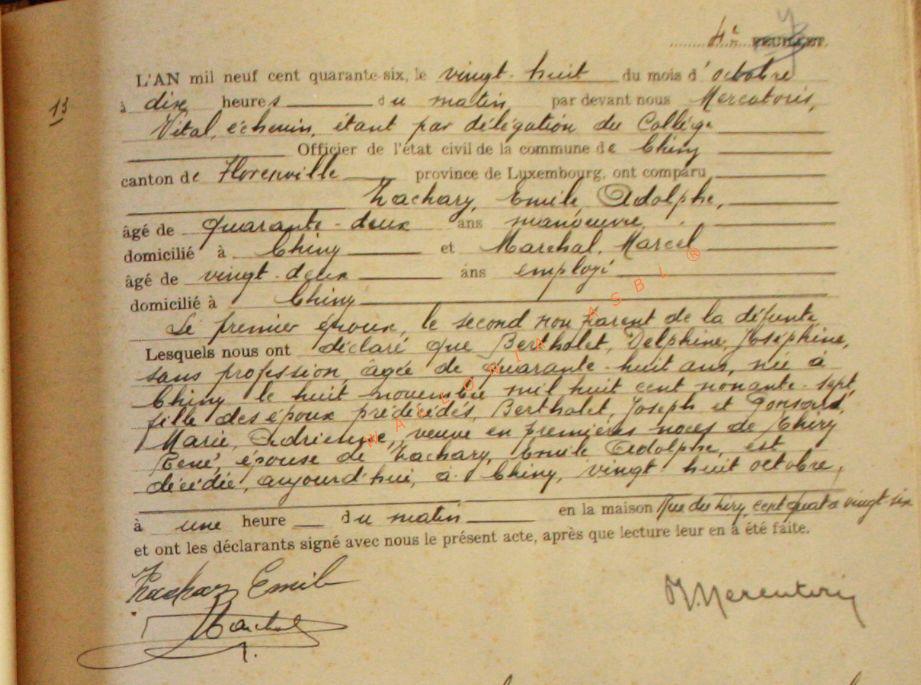 4e FEUILLET.
13
L'AN mil neuf cent quarante-six, le vingt-huit du mois d'octobre
à dix heures du matin, par devant nous Mercatoris,
Vital, échevin, étant par délégation du Collège
Officier de l'état civil de la commune de Chiny
canton de Florenville province de Luxembourg, ont comparu
Zachary, Emile, Adolphe,
âgé de quarante-deux ans manoeuvre,
domicilié à Chiny et Marchal, Marcel
âgé de vingt-deux ans employé
domicilié à Chiny
Le premier époux, le second non parent de la défunte
Lesquels nous ont déclaré que Bertholet, Delphine, Joséphine,
sans profession âgée de quarante-huit ans, née à
Chiny le huit novembre mil huit cent nonante-sept
fille des époux prédécédés, Bertholet, Joseph et Ponsard,
Marie, Adrienne, veuve en premières noces de Thiry
René, épouse de Zachary, Emile Adolphe, est
décédée, aujourd'hui, à Chiny, vingt huit octobre,
à une heure du matin en la maison Rue du cent quatre vingt-six
et ont les déclarants signé avec nous le présent acte, après que lecture leur en a été faite.
Zachary Emile
Marchal
V. Mercatoris
WALLONIA ASBL ®